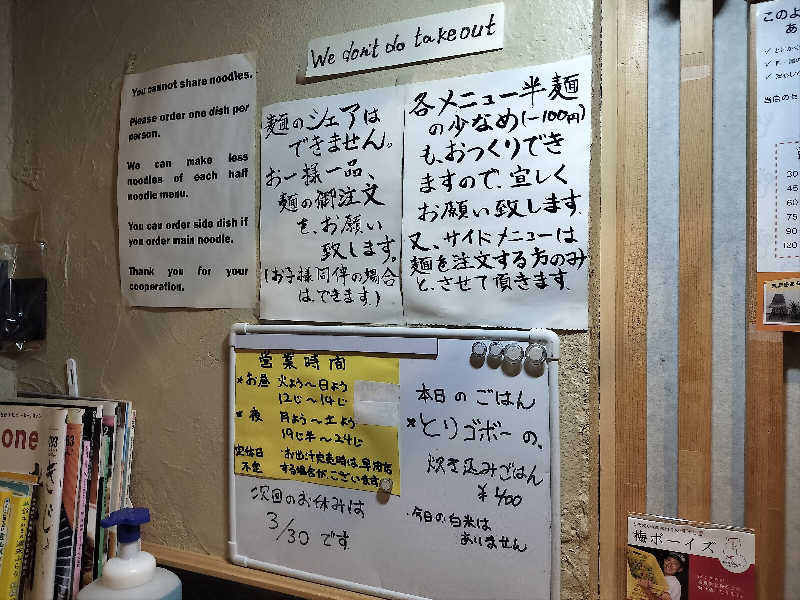 We don't do takeout
You cannot share noodles.
Please order one dish per
person.
We can make less
noodles of each half
noodle menu.
You can order side dish if
you order main noodle.
Thank you for your
cooperation.
麺のシェアは
できません。
お一様一品、
麺の御注文
を、お願い
致します。
(お子様同伴の場合
は、できます)
各メニュー半麺
の少なめ(-100円)
も、おつくりでき
ますので、宜しく
お願い致します。
又、サイドメニューは
麺を注文する方のみ
と、させて頂きます。
営業時間
お昼 火よう〜日よう
12じ〜14じ
夜 月よう〜土よう
19じ半〜24じ
定休日
不定
お出汁完売時は、早閉店
する場合がございます
次回のお休みは
3/30 です
本日のごはん
とりゴボーの、
炊き込みごはん
¥400
・今日の白米は
ありません
one
梅ボーイズ
30
45
60
75
90
120